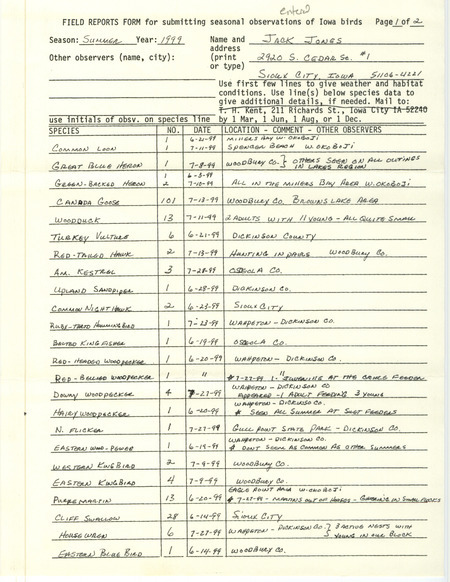 entered
FIELD REPORTS FORM for submitting seasonal observations of Iowa birds Page 1 of 2
Season: Summer Year: 1999 Name and Jack Jones
address
Other observers (name, city): (print 2920 S. Cedar St. #1
or type)
Sioux City, Iowa 51106-4221
Use first few lines to give weather and habitat
conditions. Use line(s) below species data to
give additional details, if needed. Mail to:
T. H. Kent, 211 Richards St., Iowa City IA 52240
use initials of obsv. on species line by 1 Mar, 1 Jun, 1 Aug, or 1 Dec.
SPECIES NO. DATE LOCATION - COMMENT - OTHER OBSERVERS
1 6-21-99 Millers Bay W. Okoboji
Common Loon 1 7-11-99 Spencer Beach W. Okoboji
Great Blue Heron 1 7-8-99 Woodbury Co. } Others seen on all outings in Lakes Region
1 6-5-99
Green-Backed Heron 2 7-10-99 All in the Millers Bay Area W. Okoboji
Canada Goose 101 7-13-99 Woodbury Co. Browns Lake Area
Woodduck 13 7-11-99 2 Adults with 11 young - All quite small
Turkey Vulture 6 6-21-99 Dickinson County
Red-Tailed Hawk 2 7-13-99 Hunting in pairs Woodbury Co.
Am. Kestrel 3 7-28-99 Osceola Co.
Upland Sandpiper 1 6-28-99 Dickinson Co.
Common Night Hawk 2 6-23-99 Sioux City
Ruby-Thro Hummingbird 1 7-23-99 Wahpeton - Dickinson Co.
Belted Kingfisher 1 6-19-99 Osceola Co.
Red-Headed Woodpecker 1 6-20-99 Wahpeton - Dickinson Co.
Red-Bellied Woodpecker 1 " "
# 7-27-99 1 Juvenile at the same feeder
Wahpeton - Dickinson Co
Downy Woodpecker 4 7-27-99 Appeared - 1 Adult feeding 3 young
Wahpeton - Dickinson Co
Hairy Woodpecker 1 6-20-99 # Seen all summer at suet feeders
N. Flicker 1 7-27-99 Gull Point State Park - Dickinson Co.
Wahpeton - Dickinson Co.
Eastern Wood-Pewee 1 6-19-99 # Dont seem as common as other summers
Western Kingbird 2 7-9-99 Woodbury Co.
Eastern Kingbird 4 7-9-99 Woodbury Co.
Eagle Point Area W. Okoboji
Purple Martin 13 6-20-99 # 7-27-99 - Martins out of houses - Gathering in small flocks
Cliff Swallow 28 6-14-99 Sioux City
House Wren 6 7-27-99 Wahpeton - Dickinson Co. } 3 active nests with young in our block
Eastern Blue Bird 1 6-14-99 Woodbury Co.